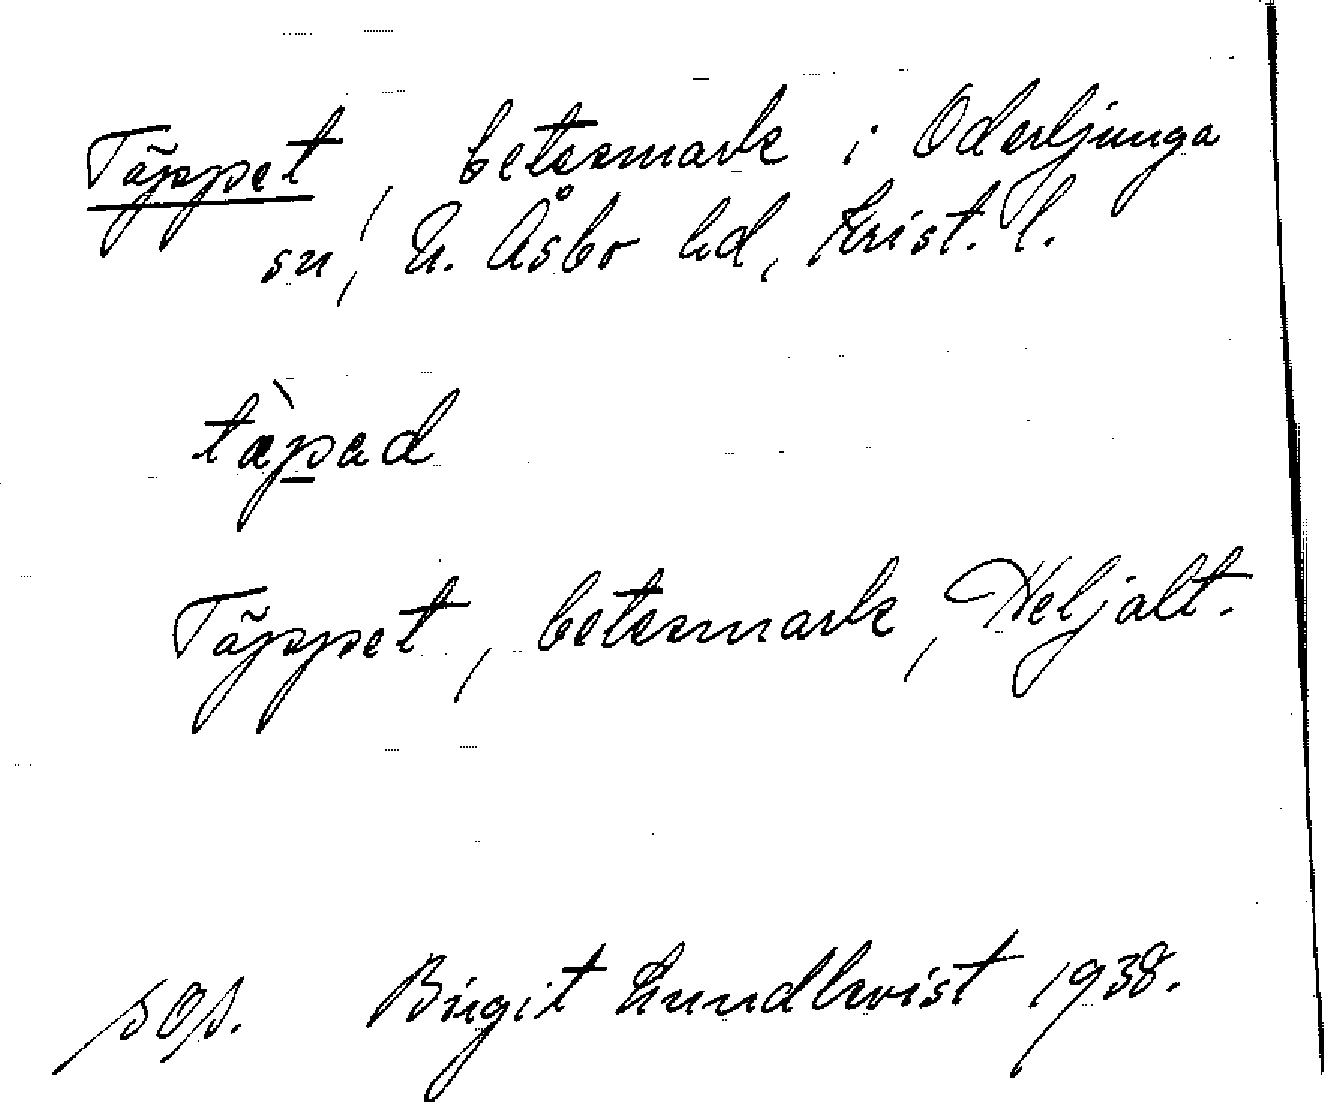 Täppet, betesmark i Oderljunga
sn, N. Åsbo hd, Krist. l.
tæ̀pad
Täppet, betesmark, Heljalt.
sOs. Birgit Lundkvist 1938.